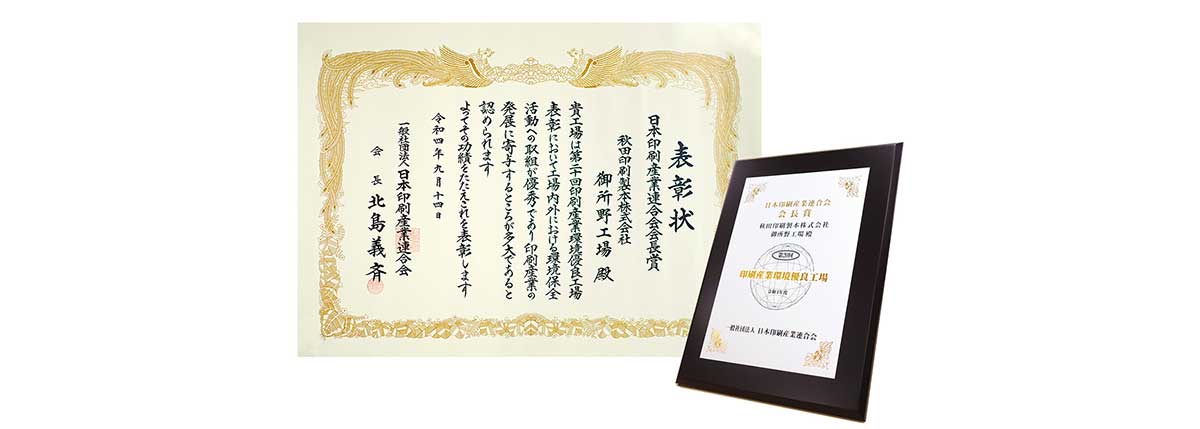 表彰状
日本印刷産業連合会会長賞
秋田印刷製本株式会社
御所野工場 殿
貴工場は第二十回印刷産業環境優良工場
表彰において工場内外における環境保全
活動への取組が優秀であり印刷産業の
発展に寄与するところが多大であると
認められます
よってその功績をたたえこれを表彰します
令和四年九月十四日
一般社団法人日本印刷産業連合会
会長 北島義斉
日本印刷産業連合会
会長賞
秋田印刷製本株式会社
御所野工場 殿
第20回
印刷産業環境優良工場
令和4年度
一般社団法人 日本印刷産業連合会